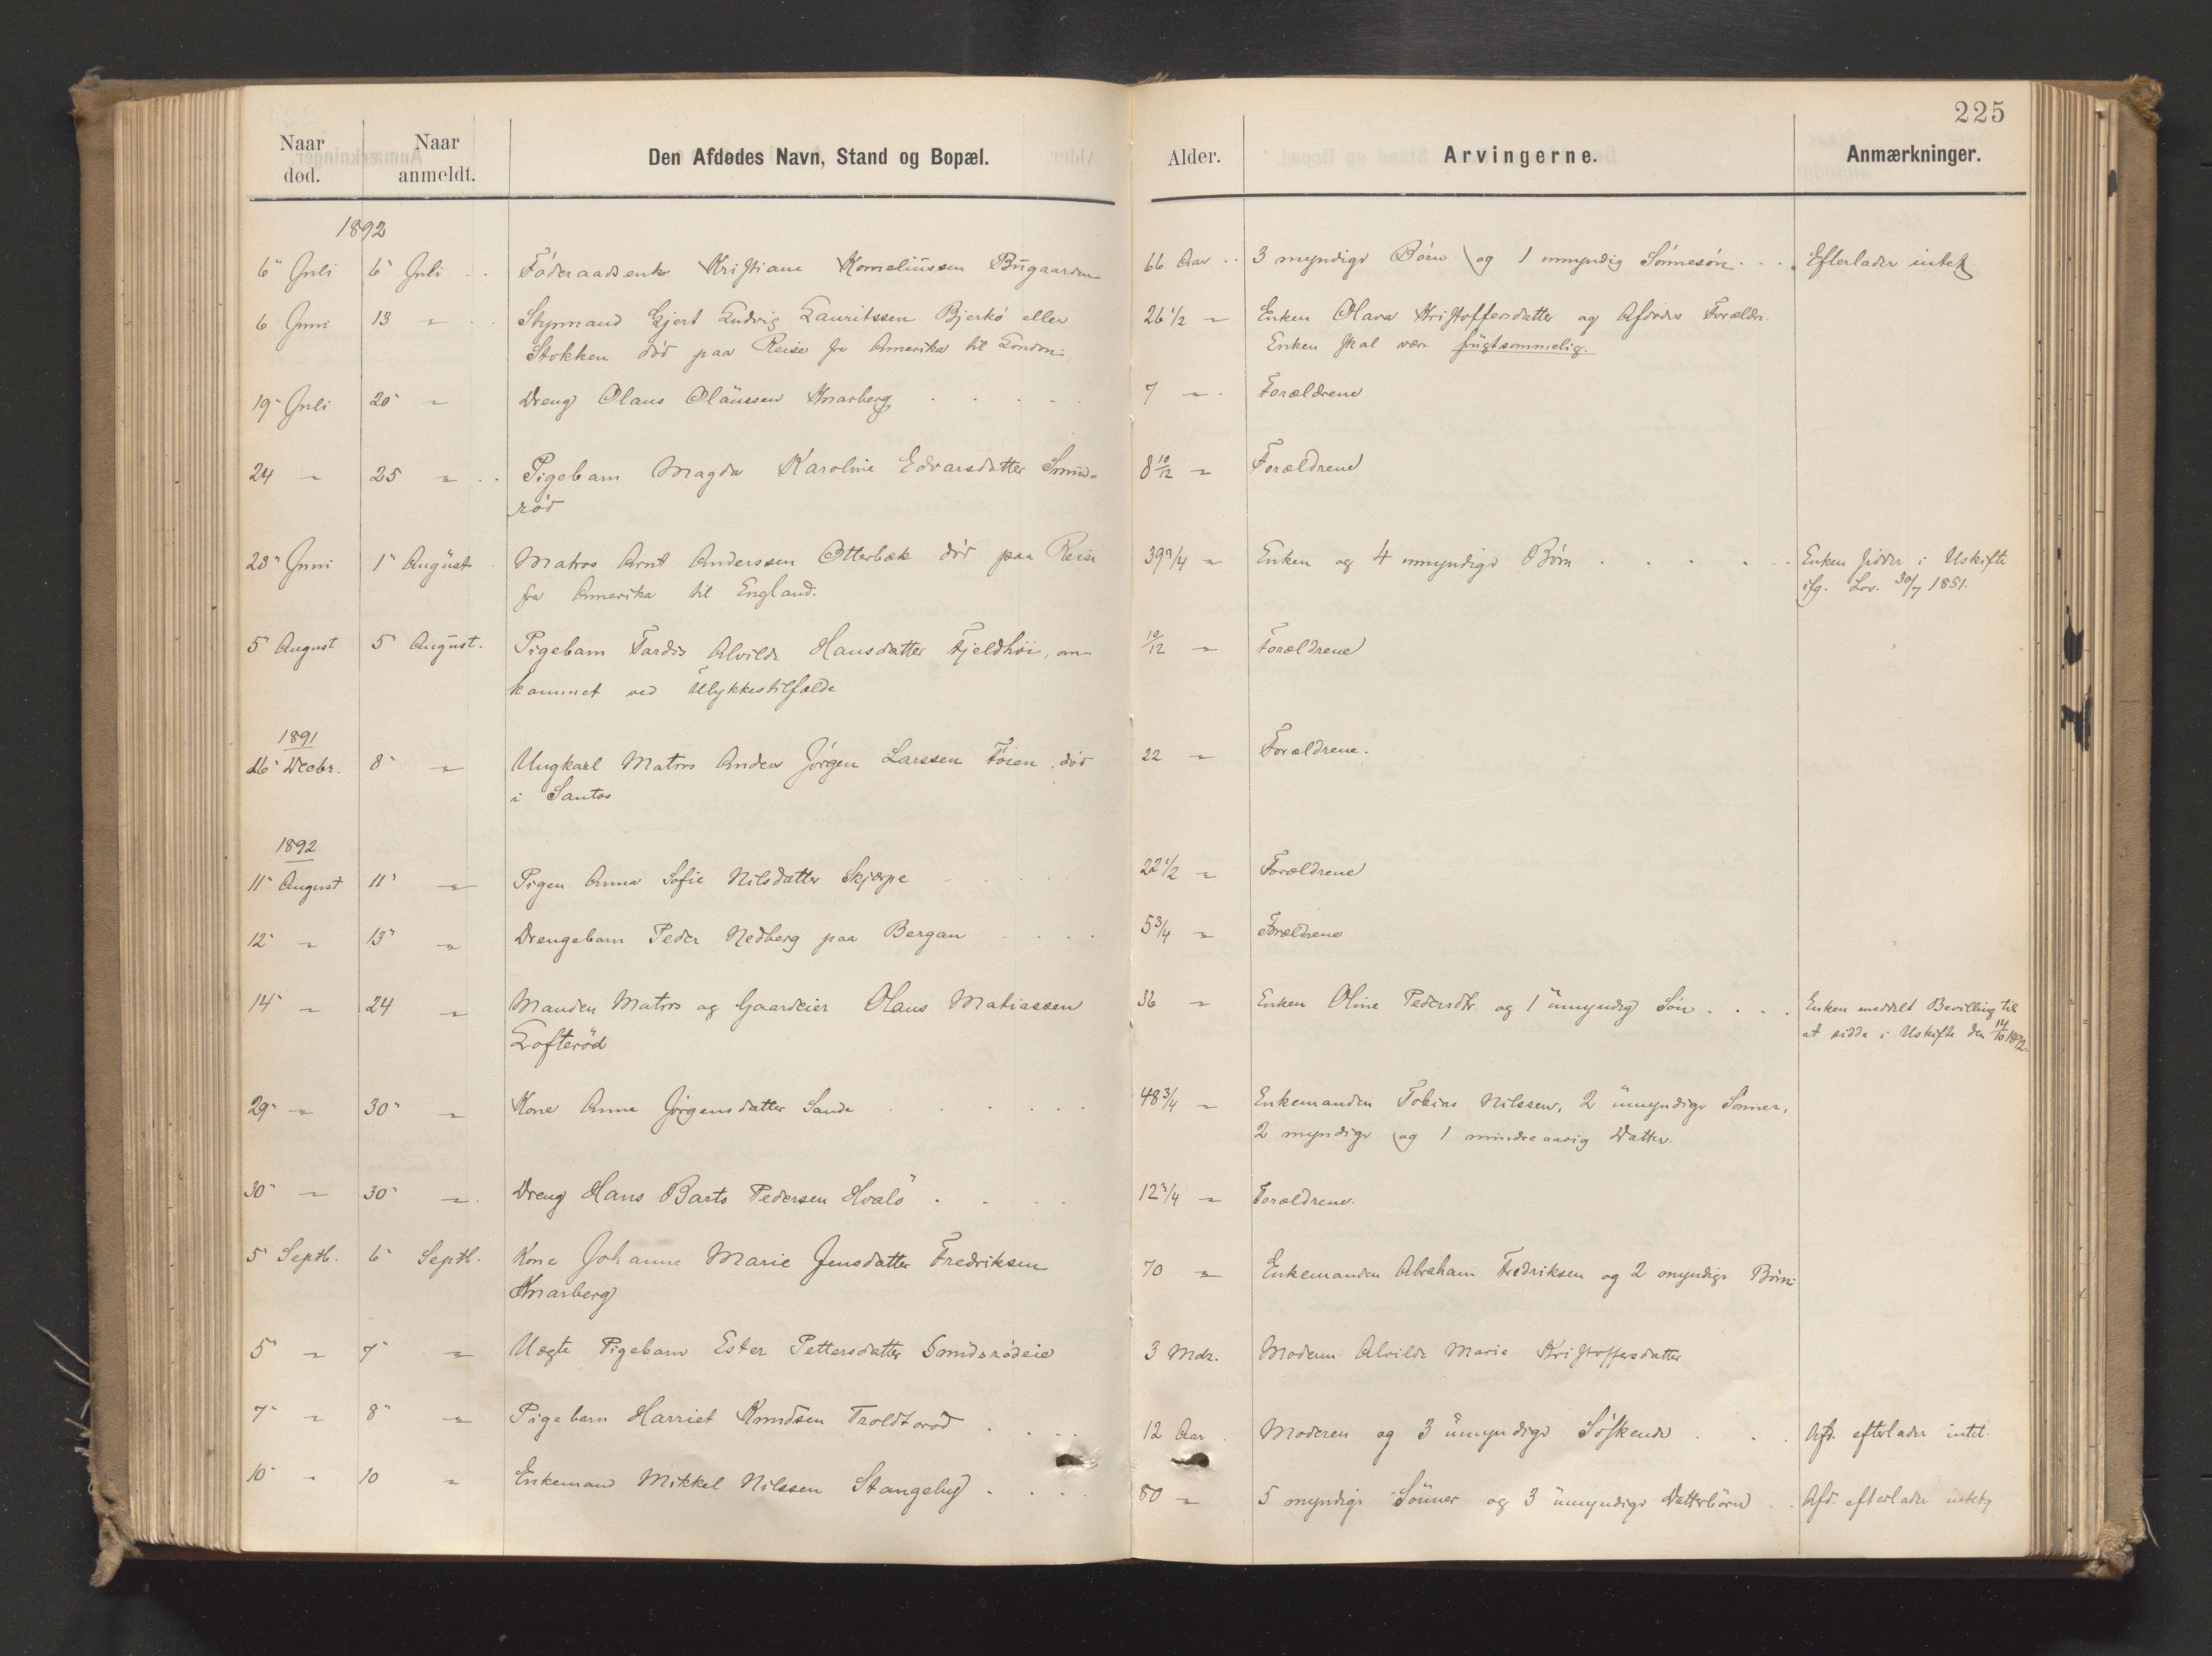 225
Naar død. Naar anmeldt. Den Afdødes Navn, Stand og Bopæl. Alder. Arvingerne. Anmærkninger.
1892
6" Juli 6" Juli Føderaadsenke Kristiane Korneliussen Bugaarden 66 Aar 3 myndige Børn og 1 umyndig Sønnesøn Efterlader intet
6 Juni 13 " Styrmand Gjert Ludvig Lauritssen Bjerkø eller 26 1/2 " Enken Olava Kristoffersdatter og Afdødes Forældre.
Stokken død paa Reise fra Amerika til London. Enken skal være frugtsommelig.
19" Juli 20" " Dreng Olaus Olaussen Knarberg 7 " Forældrene
24 " 25 " Pigebarn Magda Karoline Edvarsdatter Smids- 8 10/12 " Forældrene
rød
28" Juni 1" August Matros Arnt Anderssen Otterbæk død paa Reise 39 3/4 " Enken og 4 umyndige Børn Enken sidder i Uskifte
fra Amerika til England. ifg. Lov. 30/7 1851.
5" August 5" August. Pigebarn Tardis Alvilde Hansdatter Fjeldhöi, om- 10/12 " Forældrene
kommet ved Ulykkestilfælde
1891
26" Decbr. 8" " Ungkarl Matros Anders Jørgen Larssen Føien, død 22 " Forældrene.
i Santos
1892
11" August 11" " Pigen Anna Sofie Nilsdatter Skjærpe 22 1/2 " Forældrene
12" " 13" " Drengebarn Peder Nedberg paa Bergan 5 3/4 " Forældrene
14" " 24 " Manden Matros og Gaardeier Olaus Matiassen 36 " Enken Oline Pedersdtr. og 1 umyndig Søn Enken meddelt Bevilling til
Lofterød at sidde i Uskifte den 14/10 1892.
29" " 30" " Kone Anne Jørgensdatter Sande 48 3/4 " Enkemanden Tobias Nilssen, 2 umyndige Sønner,
2 myndige og 1 mindreaarig Datter.
30" " 30" " Dreng Hans Barts Pedersen Hvalö 12 3/4 " Forældrene.
5" Septb. 6" Septb. Kone Johanne Marie Jensdatter Fredriksen 70 " Enkemanden Abraham Fredriksen og 2 myndige Børn
Knarberg
5" " 7" " Uægte Pigebarn Ester Pettersdatter Smidsrødeie 3 Mdr. Moderen Alvilde Marie Kristoffersdatter
7" " 8" " Pigebarn Harriet Knudsen Troldsrød 12 Aar Moderen og 3 umyndige Søskende Afd. efterlader intet.
10" " 10 " Enkemand Mikkel Nilssen Stangeby 80 " 5 myndige Sönner og 3 umyndige Datterbörn Afd. efterlader intet